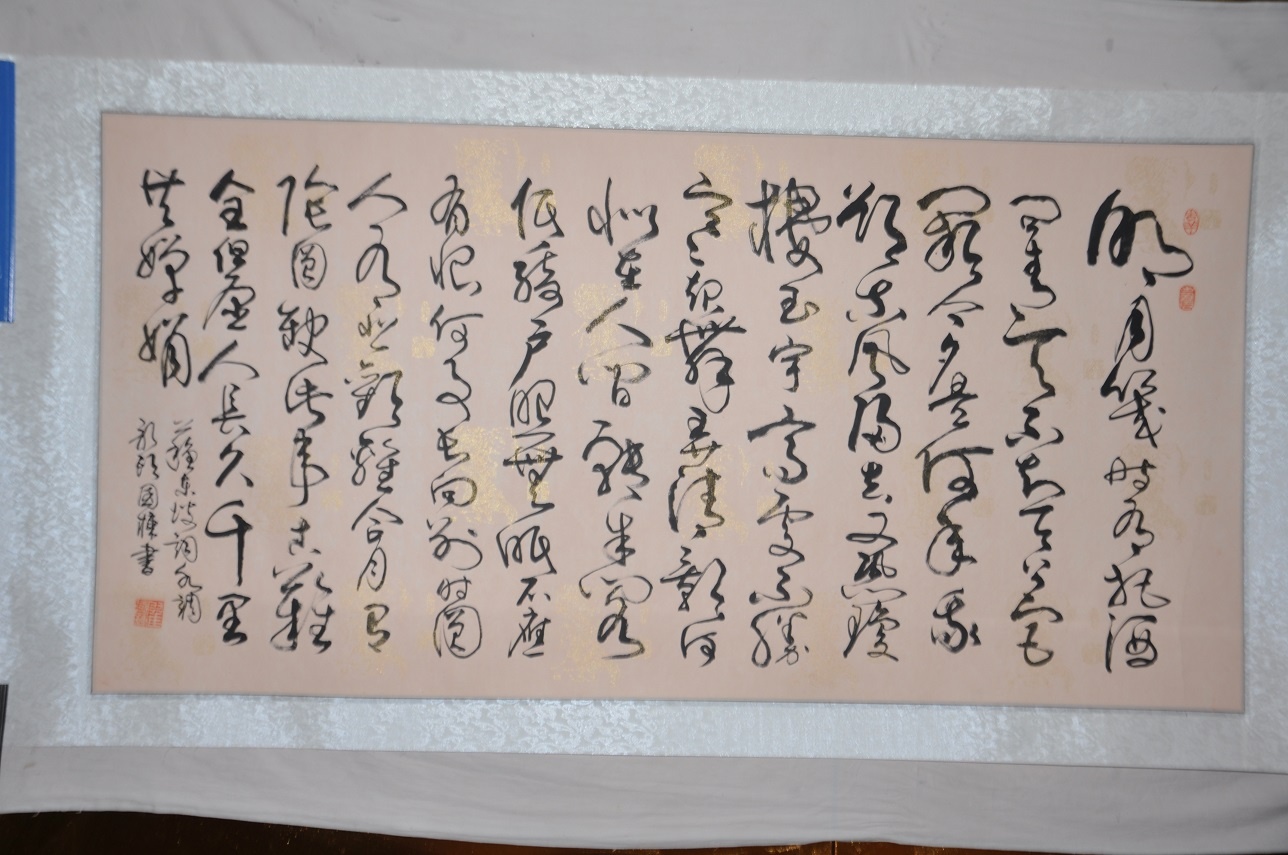 明月幾時有把酒
問青天不知天上宮
闕今夕是何年我
欲乘風歸去又恐瓊
樓玉宇高處不勝
寒起舞弄清影何
似在人間轉朱閣
低綺户照無眠不應
有恨何事長向别時圓
人有悲歡離合月有
陰圓缺此事古難
全但願人長久千里
共嬋娟
蘇東坡詞水調
歌頭國書